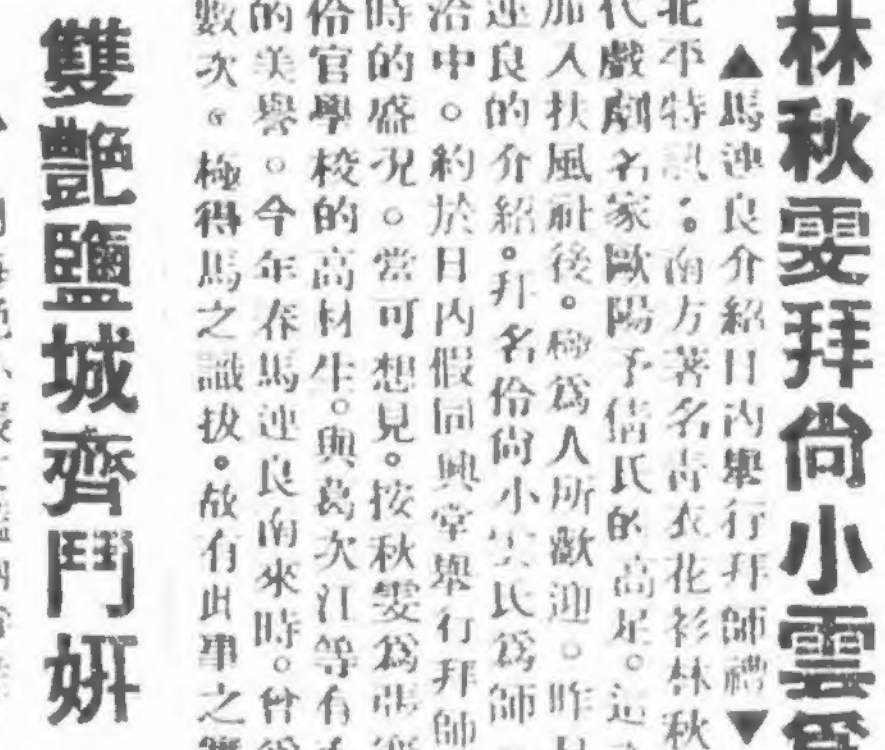 林秋雯拜尚小雲
▲馬連良介紹日內舉行拜師禮▼
北平特訊。南方著名青衣花衫林秋
代戲劇名家歐陽予倩氏的高足。這
加入扶風社後。極為人所歡迎。昨
連良的介紹。拜名伶尚小雲氏為師
洽中。約於日內假同興堂舉行拜師
時的盛況。當可想見。按秋雯為
伶官學校的高材生。與葛次江等有
的美譽。今年春馬連良南來時。曾
數次。極得馬之識拔。故有此事之
雙艷鹽城齊鬥妍